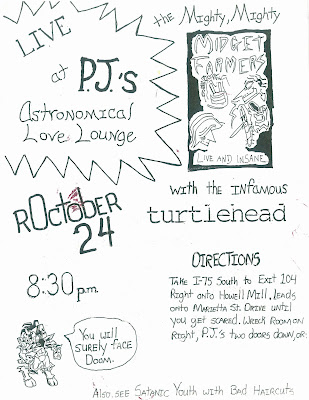 LIVE
at P.J.'s
Astronomical
Love Lounge
the Mighty, Mighty
MIDGET
FARMERS
LIVE AND INSANE
ROctober
24
with the infamous
turtlehead
8:30 p.m.
DIRECTIONS
Take I-75 South to Exit 104
Right onto Howell Mill, leads
onto Marietta St. Drive until
you get scared. Wreck Room on
Right, P.J.'s two doors down, or
You will
surely face
Doom.
Also, see Satanic Youth with Bad Haircuts